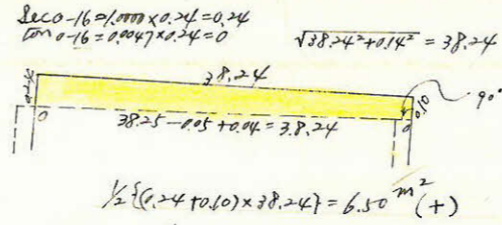 Sec 0-16=1.0000×0.24=0.24
tan 0-16=0.0047×0.24=0
√38.24²+0.14² = 38.24
38.24
0.24
0.10
90°
0
38.25-0.05+0.04=38.24
0
1/2{(0.24+0.10)×38.24}=6.50 m² (+)